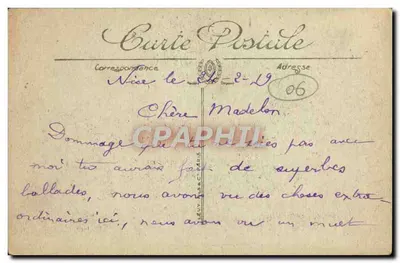 Carte Postale
Correspondance Adresse
Nice le 24-2-19
06
Chère Madelon
Dommage que tu n'étais pas avec
CPARAMA
moi tu aurais fait de superbes
ballades, nous avons vu des choses extra-
ordinaires ici, nous avons vu un muet